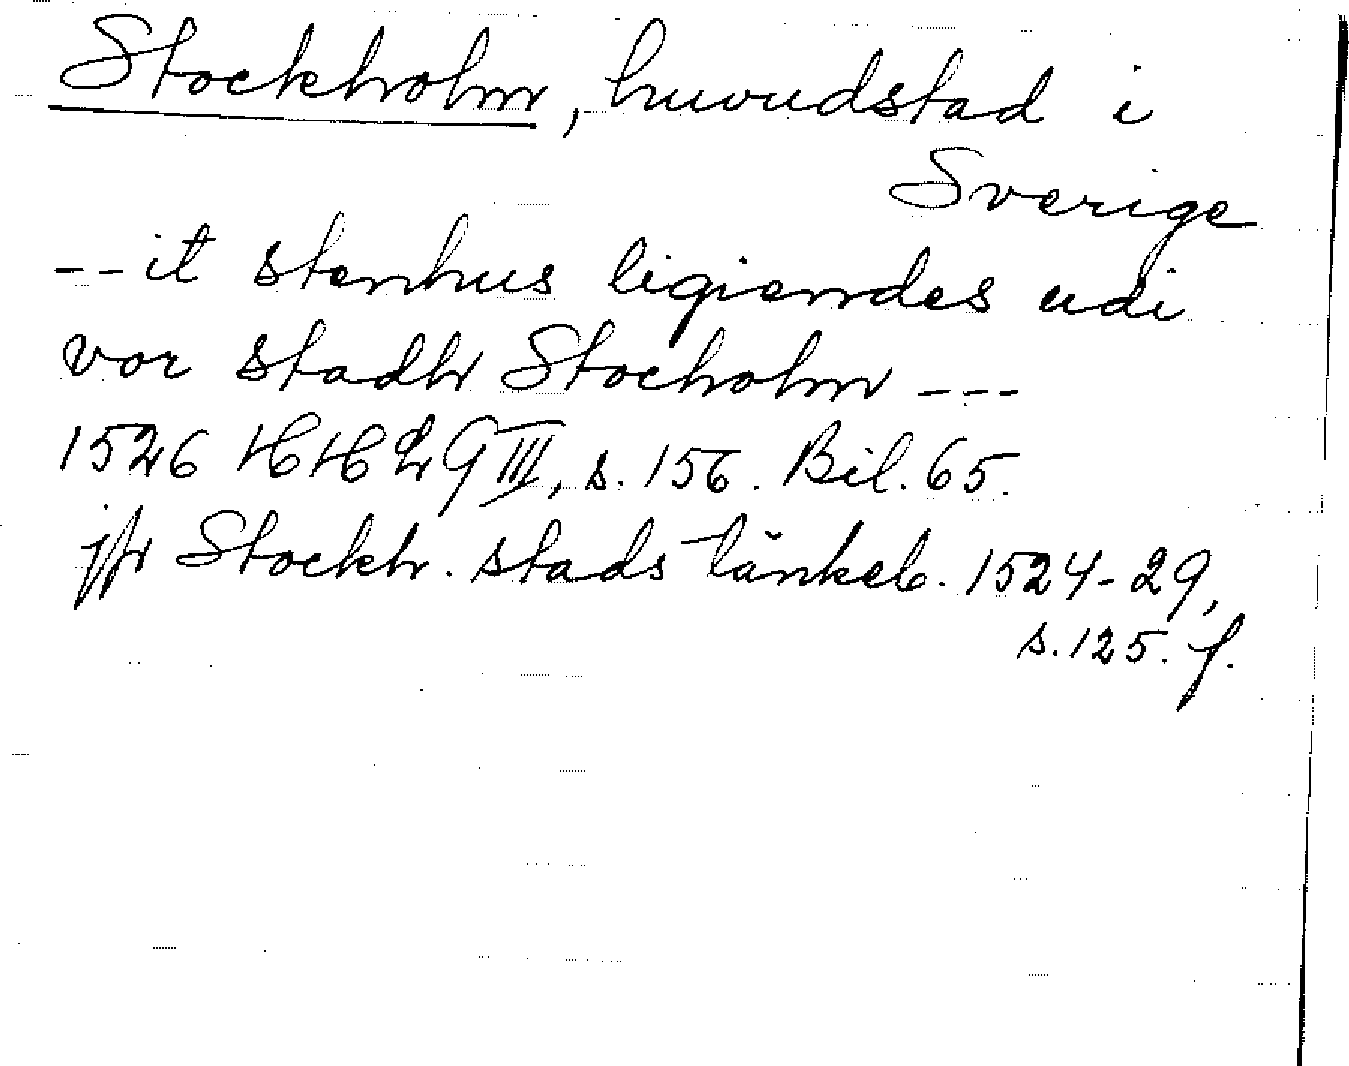 Stockholm, huvudstad i
Sverige
-- it stenhus ligiendes udi
vor stadh Stocholm ---
1526 HH 2 G III, s. 156. Bil. 65.
jfr Stockh. stads tänkeb. 1524-29,
s. 125. f.